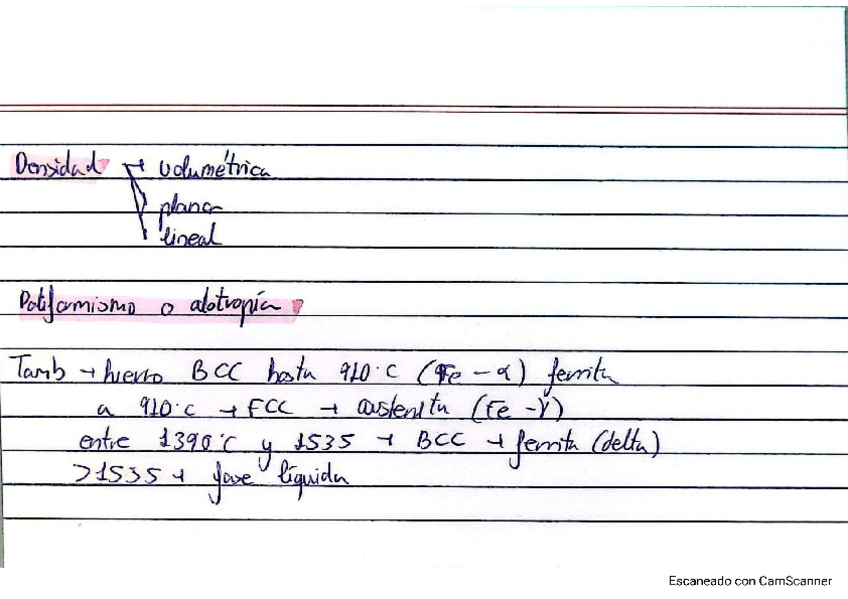 Densidad → volumétrica
planar
lineal
Poliformismo o alotropía
Tamb → hierro BCC hasta 910°C (Fe - α) ferrita
a 910°C → FCC → austenita (Fe - γ)
entre 1390°C y 1535 → BCC → ferrita (delta)
>1535 → fase líquida
Escaneado con CamScanner